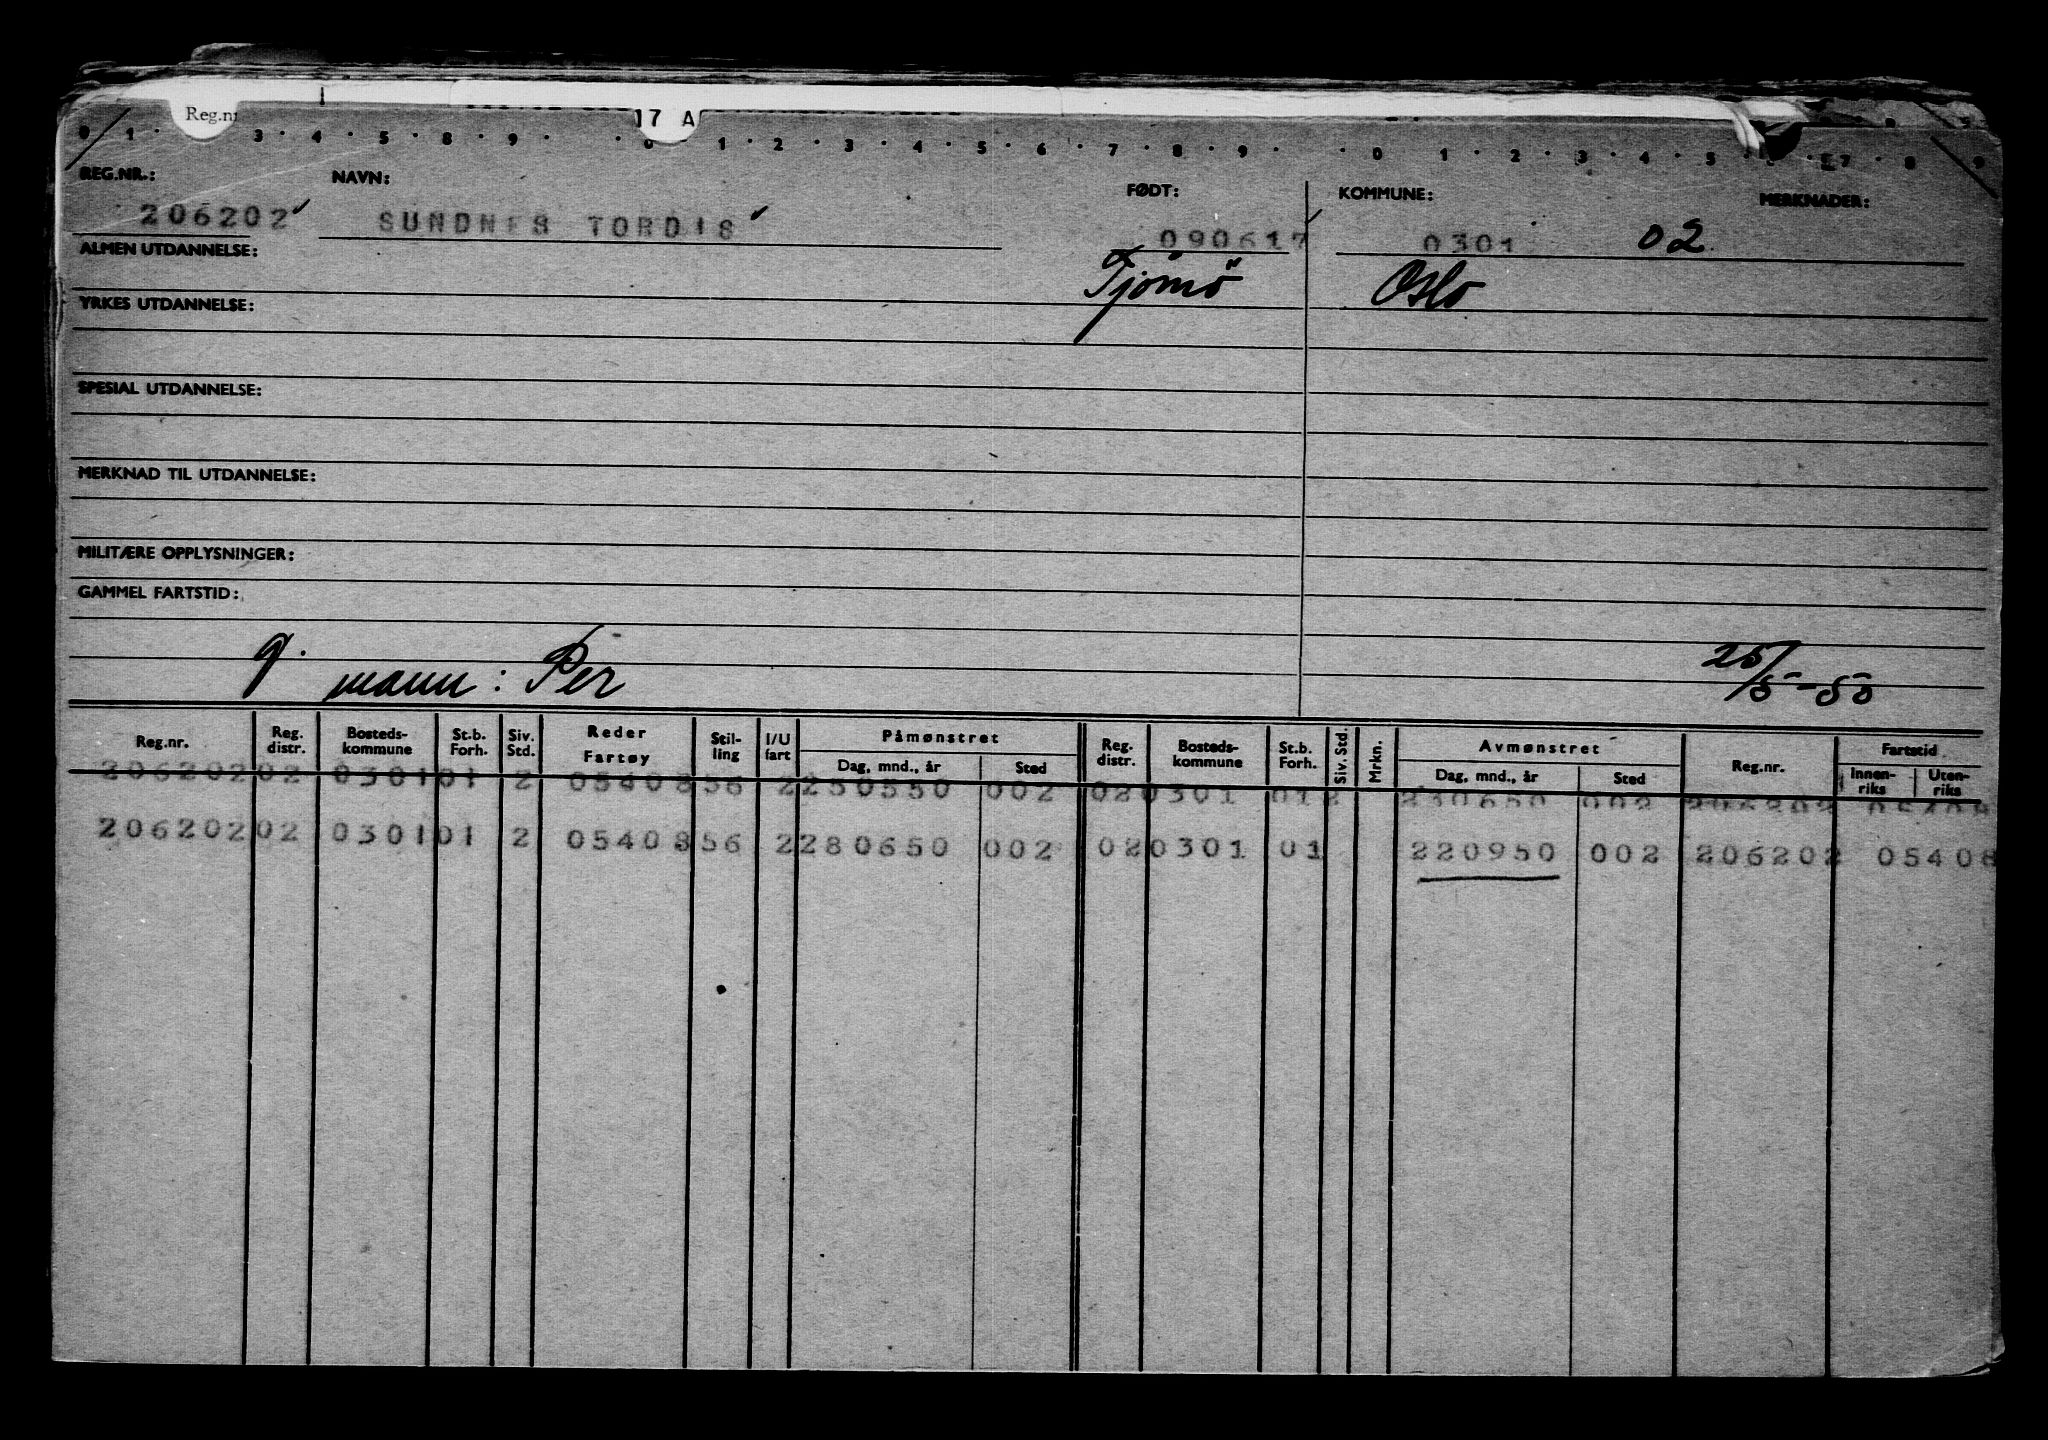 Reg.nr
17 A
0 1 · 3 · 4 · 5 · 8 · 9 · · 0 · 1 · 2 · 3 · 4 · 5 · 6 · 7 · 8 · 9 · · 0 1 · 2 · 3 · 4 · 5 · 6 · 7 · 8 · 9
REG.NR.: NAVN: FØDT: KOMMUNE: MERKNADER:
206202 SUNDNES TORDIS 090617 0301 02
ALMEN UTDANNELSE: Tjömö Oslo
YRKES UTDANNELSE:
SPESIAL UTDANNELSE:
MERKNAD TIL UTDANNELSE:
MILITÆRE OPPLYSNINGER:
GAMMEL FARTSTID:
g. mann: Per 25/5-50
Reg.nr. Reg. distr. Bosteds-kommune St.b. Forh. Siv. Std. Reder Fartøy Stil-ling I/U fart Påmønstret Dag, mnd., år Sted Reg. distr. Bosteds-kommune St.b. Forh. Siv. Std. Mrkn. Avmønstret Dag, mnd., år Sted Reg.nr. Fartstid Innen-riks Uten-riks
206202 02 0301 01 2 05408 56 2 250550 002 02 0301 01 2 230650 002 206202 05408
206202 02 0301 01 2 05408 56 2 280650 002 02 0301 01 220950 002 206202 05408